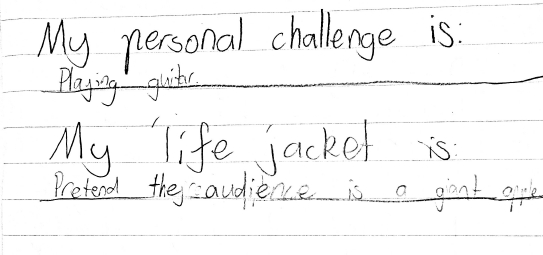 My personal challenge is:
Playing guitar.
My 'life jacket is:
Pretend they audience is a giant apple